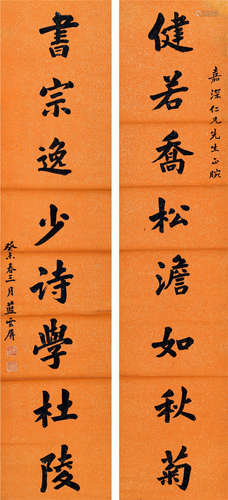 嘉深仁兄先生正腕
健若喬松澹如秋菊
書宗逸少诗學杜陵
癸未春三月藍雲屏